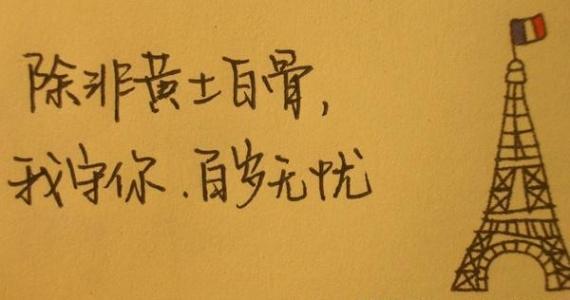 除非黄土白骨,
我守你.百岁无忧